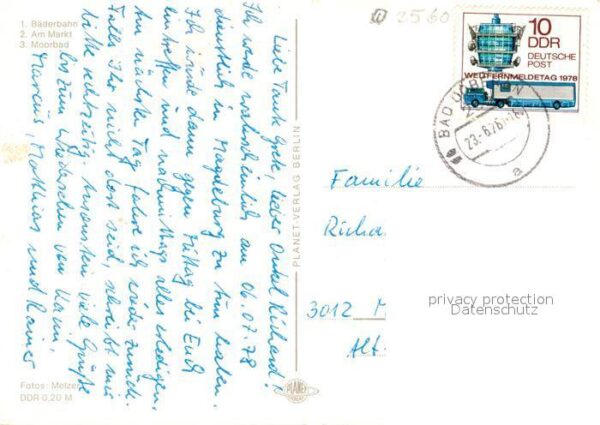 1. Bäderbahn
2. Am Markt
3. Moorbad
Liebe Tante Grete, lieber Onkel Richard!
Ich werde wahrscheinlich am 06.07.78
dienstlich in Magdeburg zu tun haben.
Ich würde dann gegen Mittag bei Euch
eintreffen und nachmittags alles erledigen.
Am nächsten Tag fahre ich wieder zurück.
Falls Ihr nicht dort seid, schreibt mir
bitte rechtzeitig. Ansonsten viele Grüße
bis zum Wiedersehen von
Marcus, Matthias und Rainer
Fotos: Melzer
DDR 0,20 M
PLANET-VERLAG BERLIN
PLANET
2560
10
DDR
DEUTSCHE
POST
WELTFERNMELDETAG 1978
BAD
23.-6.78
a
Familie
Richa
3012 M
Alt
privacy protection
Datenschutz